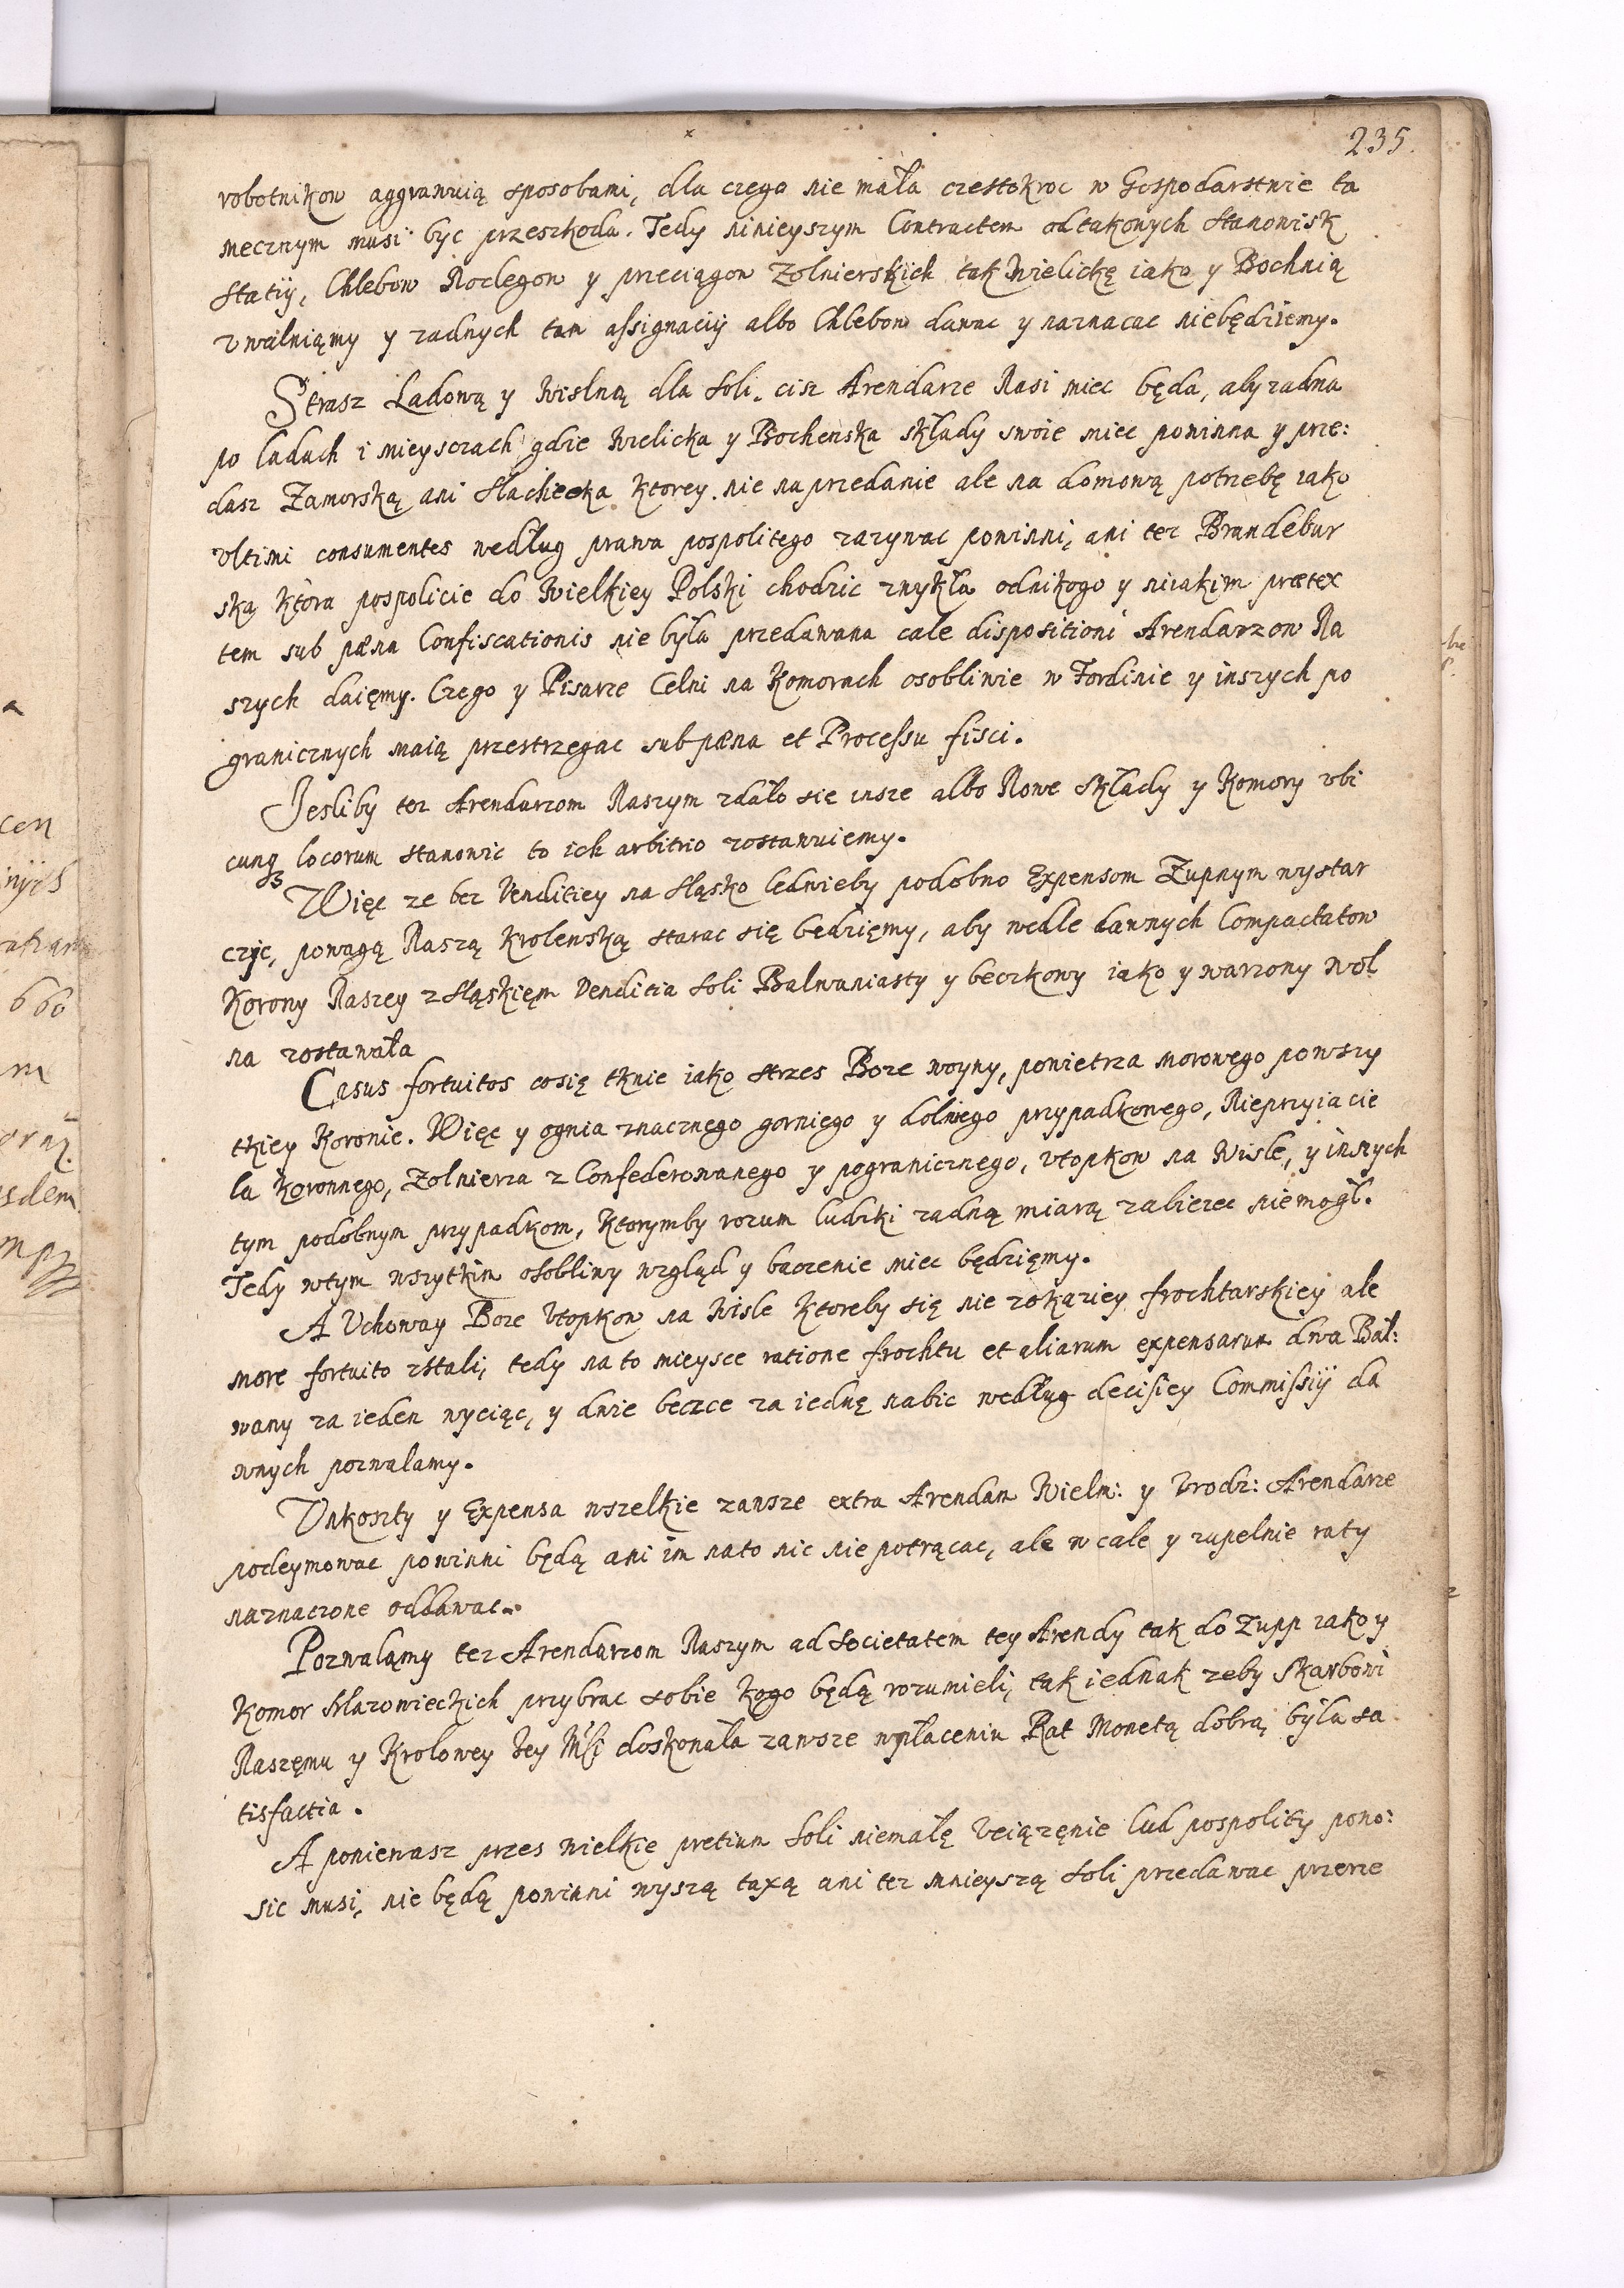 235.
robotnikow aggrawuią sposobami, dla czego nie mała czestokroc w Gospodarstwie ta
mecznym musi byc przeszkoda. Tedy ninieyszym Contractem odtakowych Stanowisk
Statiy, Chlebow Noclegow y przeciągow Zolnierskich tak Wielickę iako y Bochnią
vwalniąmy y zadnych tam assignaciy albo Chlebow dawac y naznacac niebędziemy.
Strasz Ladową y Wislną dla Soli. cisz Arendarze Nasi miec będa, aby zadna
po ladach i mieyscach gdzie Wielicka y Bochenska składy swoie miec powinna y prze:
dasz Zamorską ani Slachecka ktorey nie na przedanie ale na domową potrzebę iako
vltimi consumentes według prawa pospolitego zazywac powinni, ani tez Brandebur
ską ktora pospolicie do Wielkiey Polski chodzic zwykła odnikogo y niiakim prætex
tem sub pæna Confiscationis nie była przedawana cale dispositioni Arendarzow Na
szych daięmy. Czego y Pisarze Celni na Komorach osobliwie w Fordinie y inszych po
granicznych maią przestrzegac sub pæna et Processu fisci.
Jesliby tez Arendarzom Naszym zdało sie insze albo Nowe Składy y Komory vbi
cunqz locorum stanowic to ich arbitrio zostawuiemy.
Więc ze bez Venditiey na Sląsko ledwieby podobno Expensom Zupnym wystar
czyc, powagą Naszą Krolewską starac się będzięmy, aby wedle dawnych Compactatow
Korony Naszey z Sląskięm Venditia Soli Balwaniasty y beczkowy iako y warzony wol
na zostawała
Casus fortuitos cosię tknie iako strzes Boze woyny, powietrza morowego powszy
tkiey Koronie. Więc y ognia znacznego gorniego y dolnego przypadkowego, Nieprzyiacie
la Koronnego, Zolnierza z Confederowanego y pogranicznego, vtopkow na Wisle, y inszych
tym podobnym przypadkom, ktorymby rozum ludzki zadną miarą zabiezec niemogł.
Tedy wtym wszytkim osobliwy wzgląd y baczenie miec będzięmy.
A Vchoway Boze Vtopkow na Wisle ktoreby się nie zokaziey frochtarskiey ale
more fortuito zstali, tedy na to mieysce ratione frochtu et aliarum expensarum dwa Bał:
wany za ieden wyciąc, y dwie beczce za iednę nabic według decisiey Commissiy da
wnych pozwalamy.
Vnkoszty y Expensa wszelkie zawsze extra Arendam Wielm: y Vrodz: Arendarze
podeymowac powinni będą ani im nato nic nie potrącac, ale w cale y zupelnie raty
naznaczone oddawac.
Pozwalamy tez Arendarzom Naszym ad Societatem tey Arendy tak do Zupp iako y
Komor Mazowieckich przybrac sobie kogo będą rozumieli, tak iednak zeby Skarbowi
Naszęmu y Krolowey Jey Msci doskonała zawsze wpłaceniu Rat Monetą dobrą była sa
tisfactia.
A poniewasz przes wielkie pretium Soli niemałę Vciązęnie lud pospolity pono:
sic musi, nie będą powinni wyszą taxą ani tez mnieyszą Soli przedawac przeze